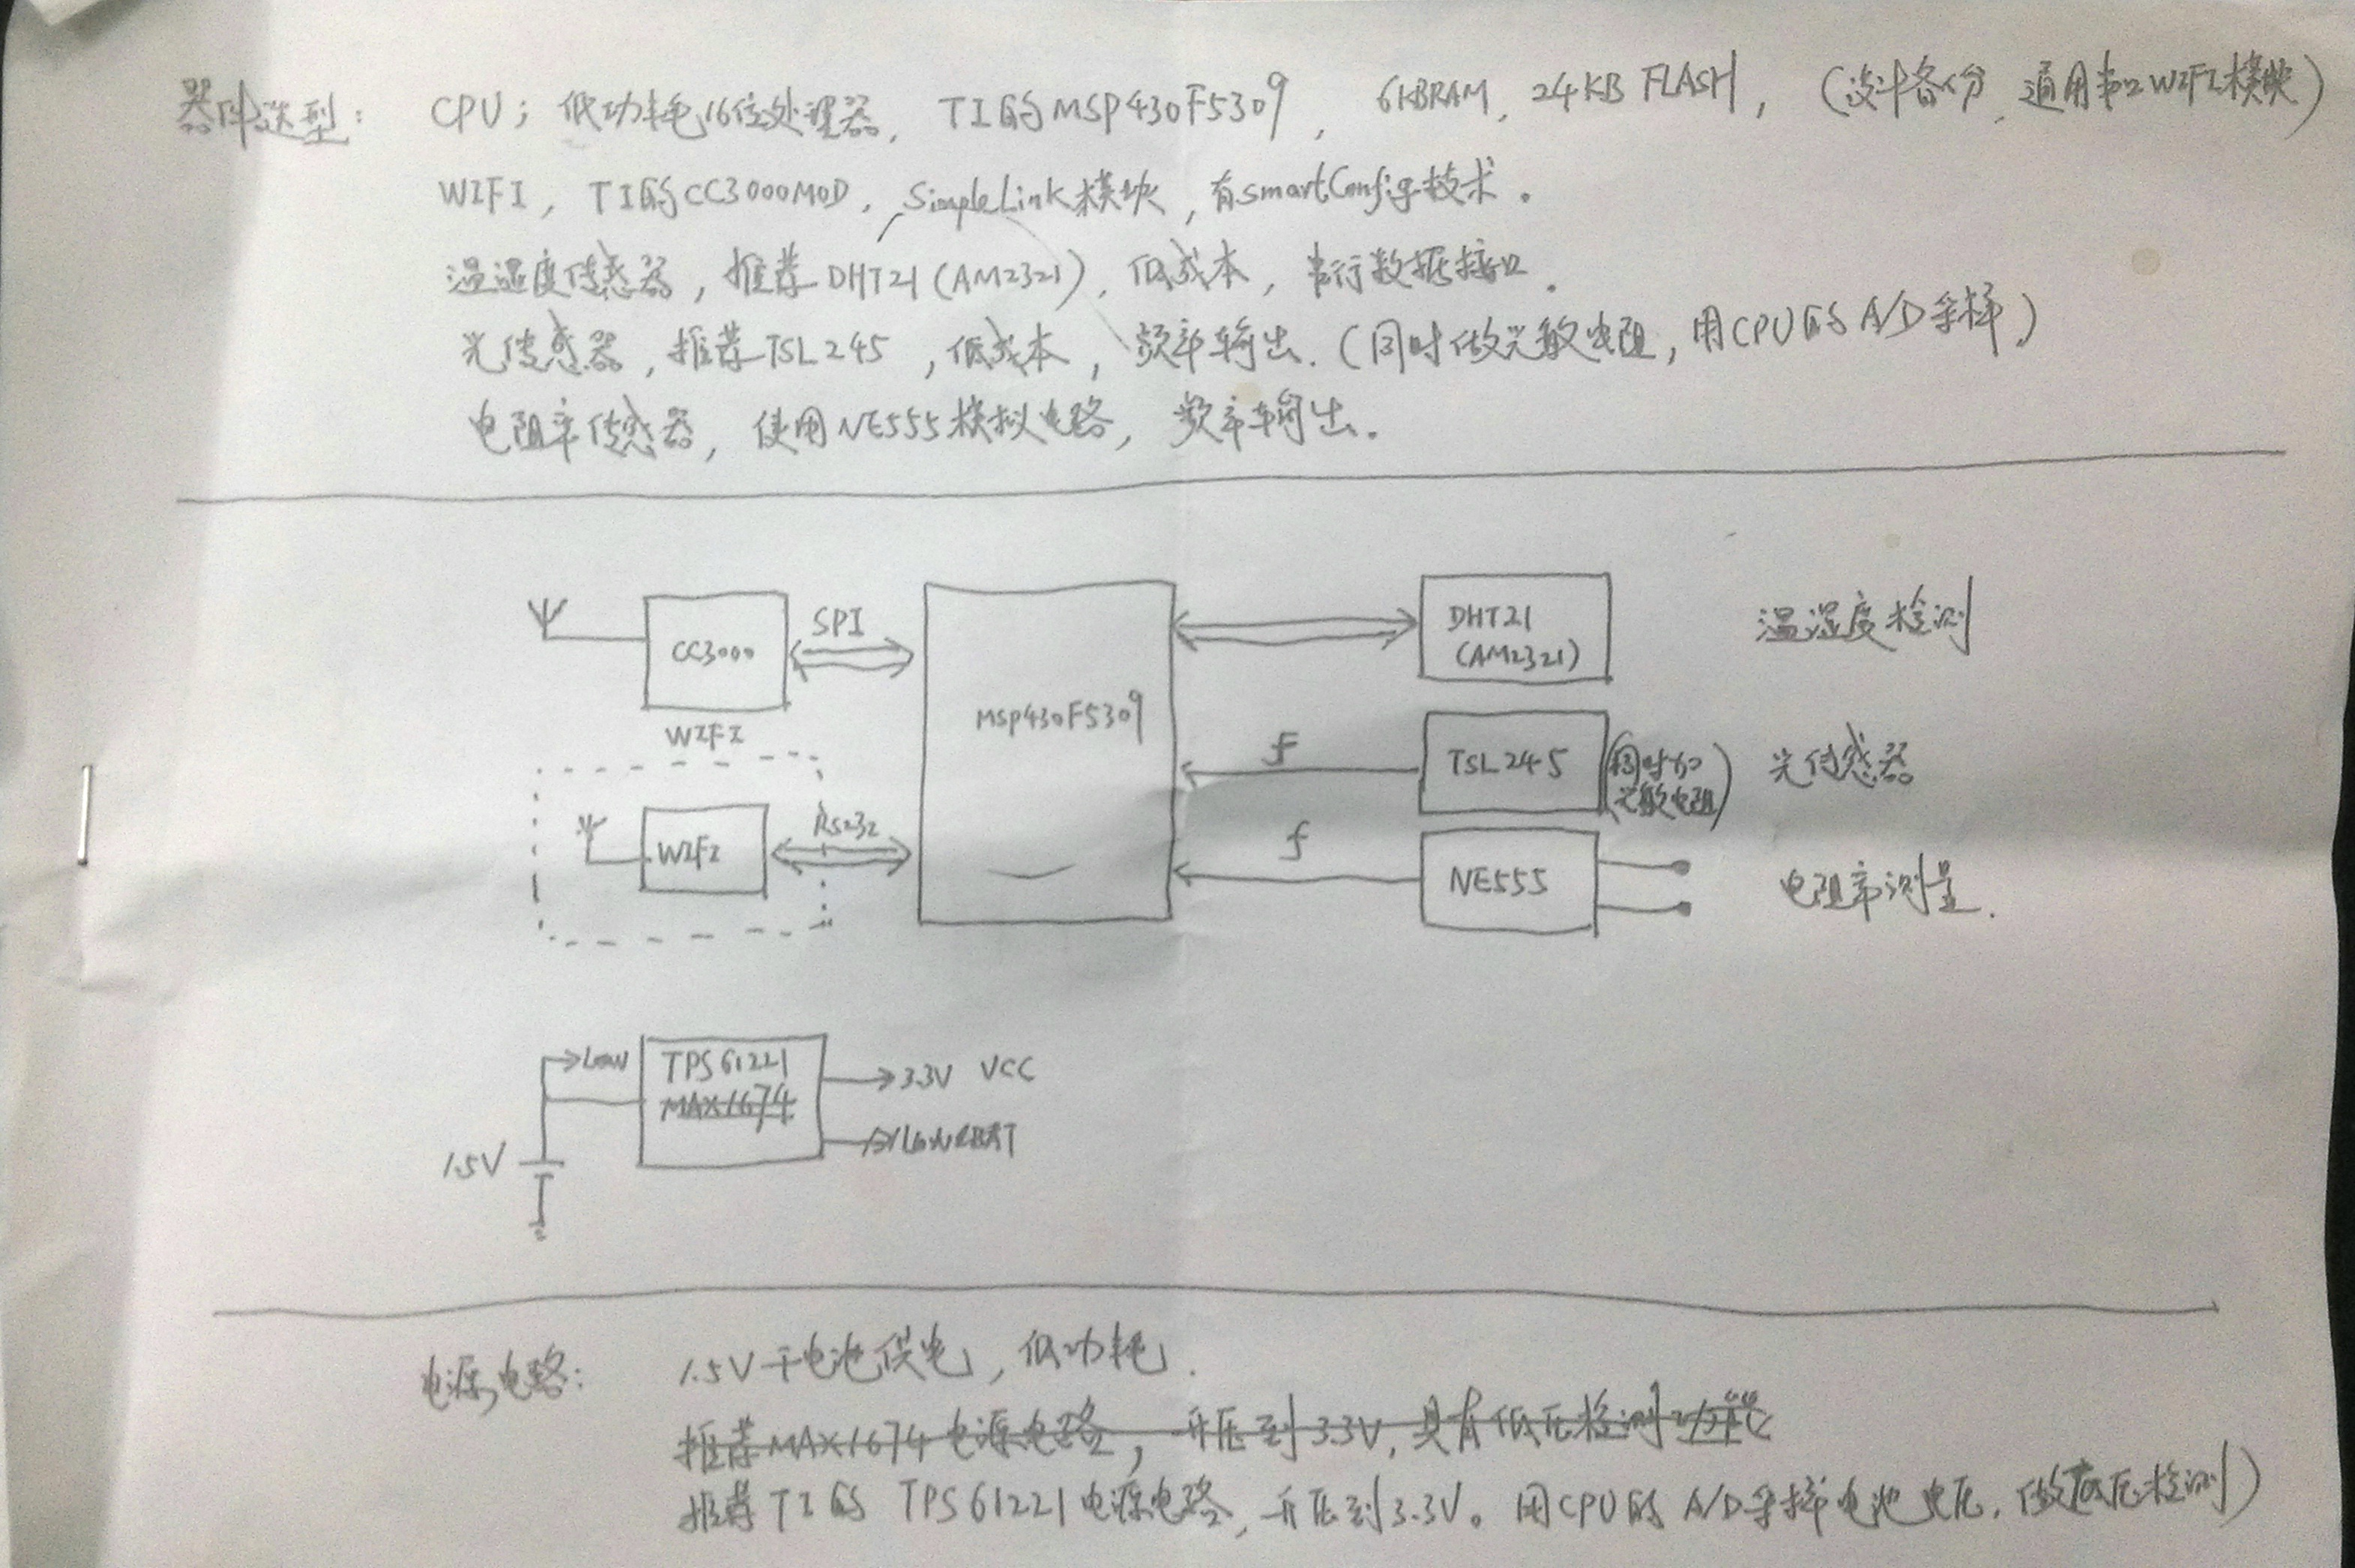 器件选型: CPU; 低功耗16位处理器, TI的MSP430F5309, 6KBRAM, 24KB FLASH, (设计备份, 通用串口WIFI模块)
WIFI, TI的CC3000MOD, SimpleLink模块, 有SmartConfig技术.
温湿度传感器, 推荐DHT21(AM2321), 低成本, 串行数据接口.
光传感器, 推荐TSL245, 低成本, 频率输出. (同时做光敏电阻, 用CPU的A/D采样)
电阻率传感器, 使用NE555模拟电路, 频率输出.
CC3000
SPI
WIFI
MSP430F5309
DHT21
(AM2321)
温湿度检测
f
TSL245
光敏电阻)
光传感器
WIFI
RS232
f
NE555
电阻率测量.
LOW
TPS61221
MAX1674
3.3V VCC
1.5V
电源电路: 1.5V干电池供电, 低功耗.
推荐MAX1674电源电路, 升压到3.3V, 具有低压检测功能
推荐TI的TPS61221电源电路, 升压到3.3V。用CPU的A/D采样电池电压, 做低压检测)